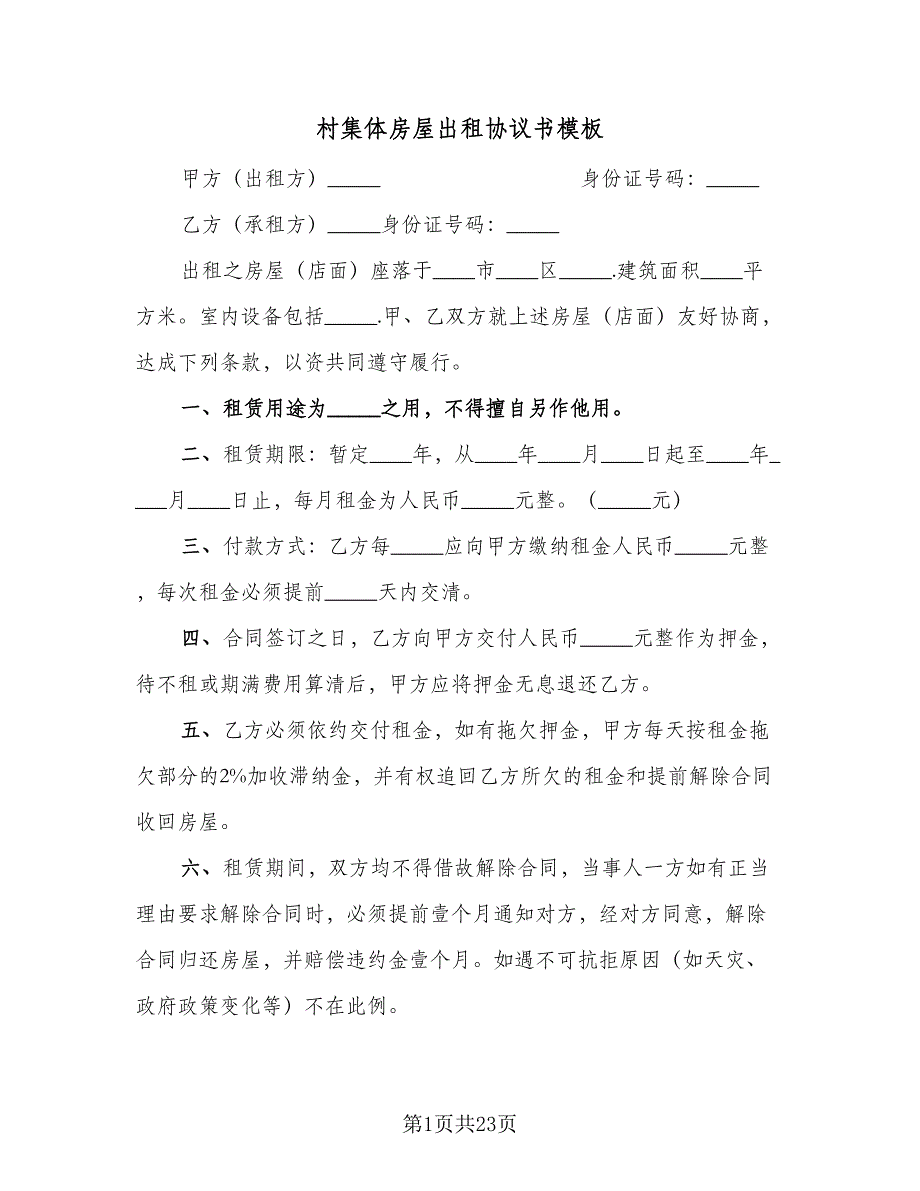 村集体房屋出租协议书模板
甲方（出租方）_____ 身份证号码：_____
乙方（承租方）_____身份证号码：_____
出租之房屋（店面）座落于____市____区_____.建筑面积____平
方米。室内设备包括_____.甲、乙双方就上述房屋（店面）友好协商，
达成下列条款，以资共同遵守履行。
一、租赁用途为_____之用，不得擅自另作他用。
二、租赁期限：暂定____年，从____年____月____日起至____年_
___月____日止，每月租金为人民币_____元整。（_____元）
三、付款方式：乙方每_____应向甲方缴纳租金人民币_____元整
，每次租金必须提前_____天内交清。
四、合同签订之日，乙方向甲方交付人民币_____元整作为押金，
待不租或期满费用算清后，甲方应将押金无息退还乙方。
五、乙方必须依约交付租金，如有拖欠押金，甲方每天按租金拖
欠部分的2%加收滞纳金，并有权追回乙方所欠的租金和提前解除合同
收回房屋。
六、租赁期间，双方均不得借故解除合同，当事人一方如有正当
理由要求解除合同时，必须提前壹个月通知对方，经对方同意，解除
合同归还房屋，并赔偿违约金壹个月。如遇不可抗拒原因（如天灾、
政府政策变化等）不在此例。
第1页共23页